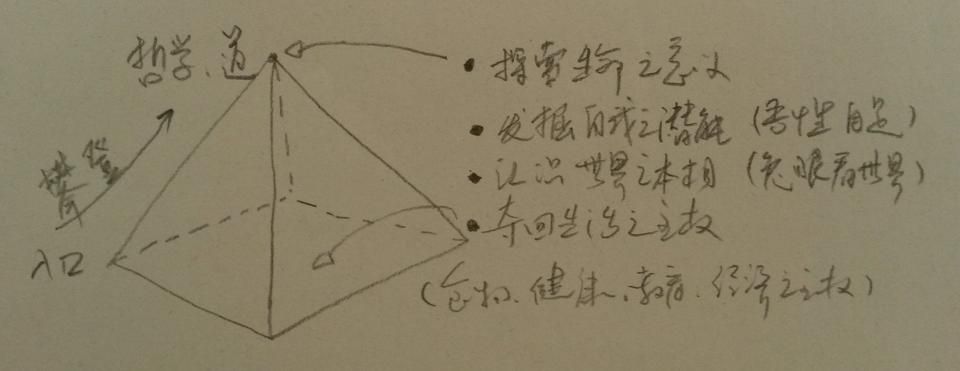 哲学、道
攀登
入口
• 探索生命之意义
• 发掘自我之潜能 (吾性自足)
• 认识世界之本相 (兔眼看世界)
• 夺回生活之主权
(食物、健康、教育、经济之主权)